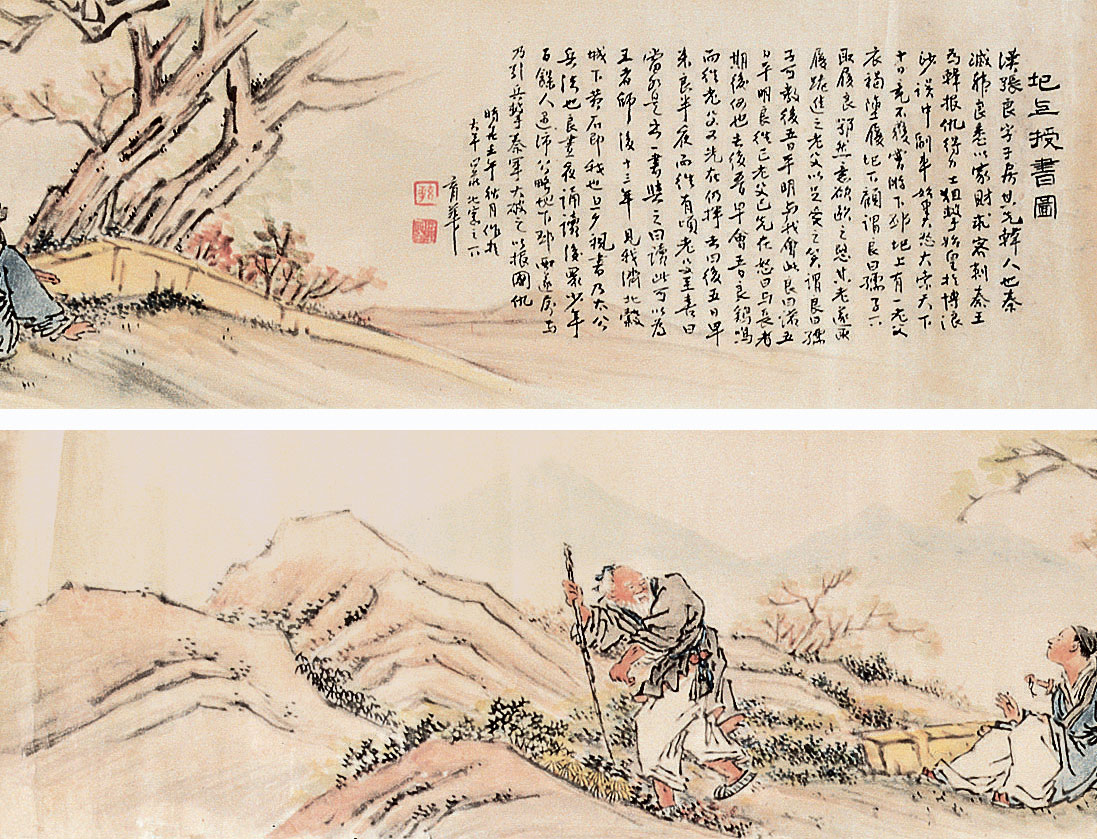 圯上授書圖
漢張良字子房其先韓人也秦
滅韓良悉以家財求客刺秦王
為韓報仇得力士狙擊始皇於博浪
沙誤中副車始皇大怒大索天下
十日竟不獲嘗游下邳圯上有一老父
衣褐墮履圯下顧謂良曰孺子下
取履良鄂然意欲毆之愍其老遂取
履跪進之老父以足受之笑謂良曰孺
子可教後五日平明與我會此良曰諾五
日平明良往已老父已先在怒曰與長者
期後何也去後五日早會五日良鷄鳴
而往老父又先在仍揮去曰後五日早
來良半夜而往有頃老父至喜曰
當如是出一書與之曰讀此可以為
王者師後十三年見我濟北穀
城下黃石即我也旦夕視書乃太公
兵法也良晝夜誦讀後聚少年
百餘人過沛公略地下邳西遂屬焉
乃引兵擊秦軍大破之以報國仇
時在壬午秋月作於
太平北窗下